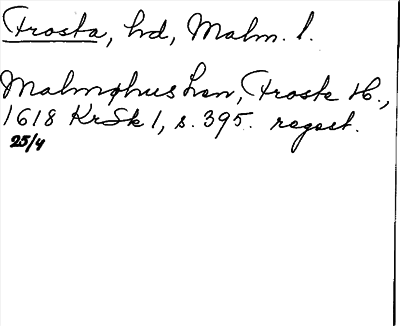 Frosta, hd, Malm. l.
Malmøhus Len, Froste H.,
1618 KrSk 1, s. 395. regest.
25/4